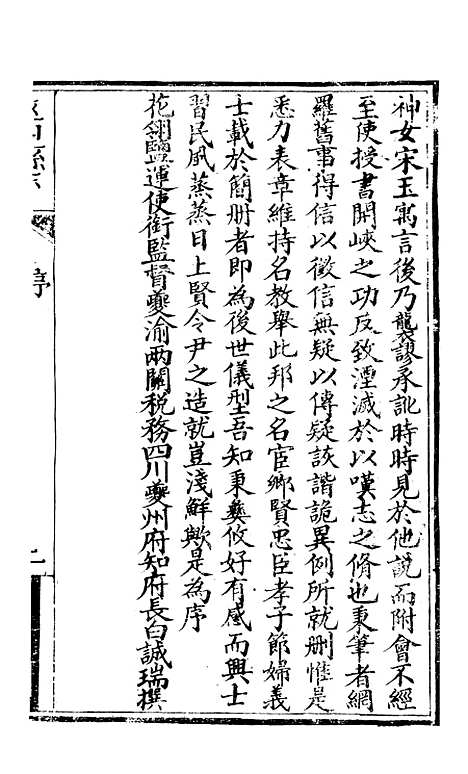 神女宋玉寓言後乃襲謬承訛時時見於他說而附會不經
至使授書開峽之功反致湮滅於以嘆志之脩也秉筆者網
羅舊事得信以徵信無疑以傳疑詼諧詭異例所就刪惟是
悉力表章維持名教舉此邦之名宦鄉賢忠臣孝子節婦義
士載於簡册者即為後世儀型吾知秉彝攸好有感而興士
習民風蒸蒸日上賢令尹之造就豈淺鮮歟是為序
花翎鹽運使銜監督夔渝兩關稅務四川夔州府知府長白誠瑞撰
序